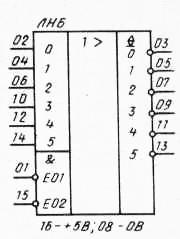 ЛНБ
1 >
02 0 0 03
04 1 1 05
06 2 2 07
10 3 3 09
12 4 4 11
14 5 5 13
&
01 EO1
15 EO2
16-+5В; 08-0В